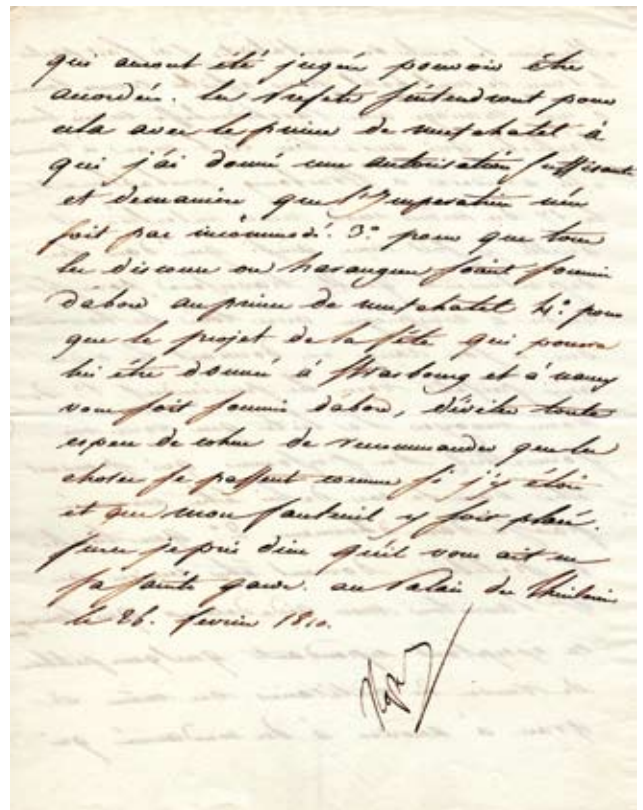 qui auront été jugées pouvoir être
accordées. les Prefets s'entendront pour
cela avec le prince de neufchatel à
qui j'ai donné une autorisation suffisante
et de maniere que l'Imperatrice n'en
soit pas incommodé. 3.° pour que tous
les discours ou harangues soient fournis
d'abord au prince de neufchatel 4.° pour
que le projet de la fête qui pourra
lui être donnée à Strasbourg et à nancy
vous soit fournis d'abord, d'éviter toute
espece de cohue de recommander que les
choses se passent comme si j'y étois
et que mon fauteuil y soit placé.
sur ce je prie dieu qu'il vous ait en
sa sainte garde. au Palais des Thuileries
le 26. fevrier 1810.
Nap